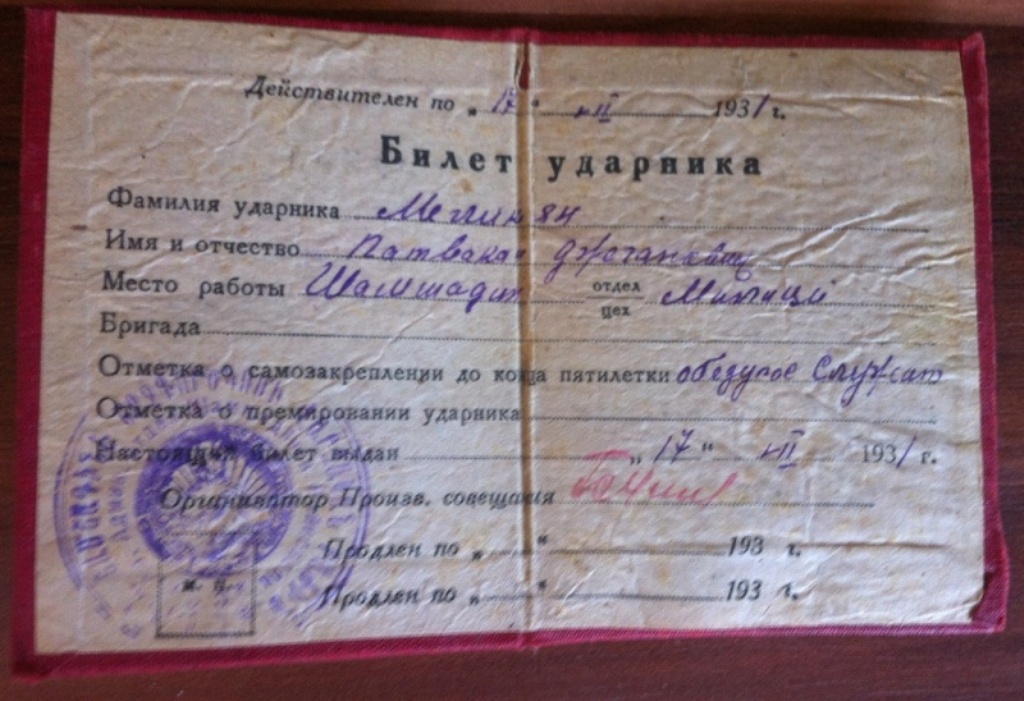 Действителен по „ 17 “ VIII 1931 г.
Билет ударника
Фамилия ударника Меликян
Имя и отчество Патвакан
Место работы Шамшадин отдел Милиции
цех
Бригада
Отметка о самозакреплении до конца пятилетки Служит
Отметка о премировании ударника
Настоящий билет выдан „ 17 “ VIII 1931 г.
Организатор Произв. совещания
Продлен по „ “ 193 г.
м. п.
Продлен по „ “ 193 г.